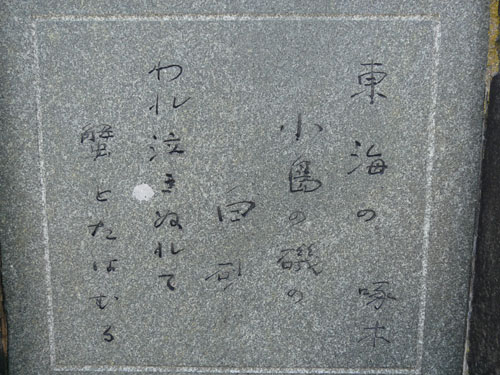 東海の 啄木
小島の磯の
白砂
われ泣きぬれて
蟹とたはむる